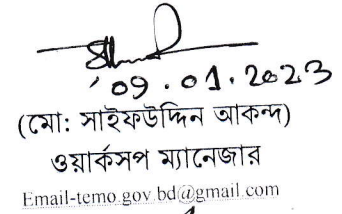 09.01.2023
(মো: সাইফউদ্দিন আকন্দ)
ওয়ার্কসপ ম্যানেজার
Email-temo.gov.bd@gmail.com